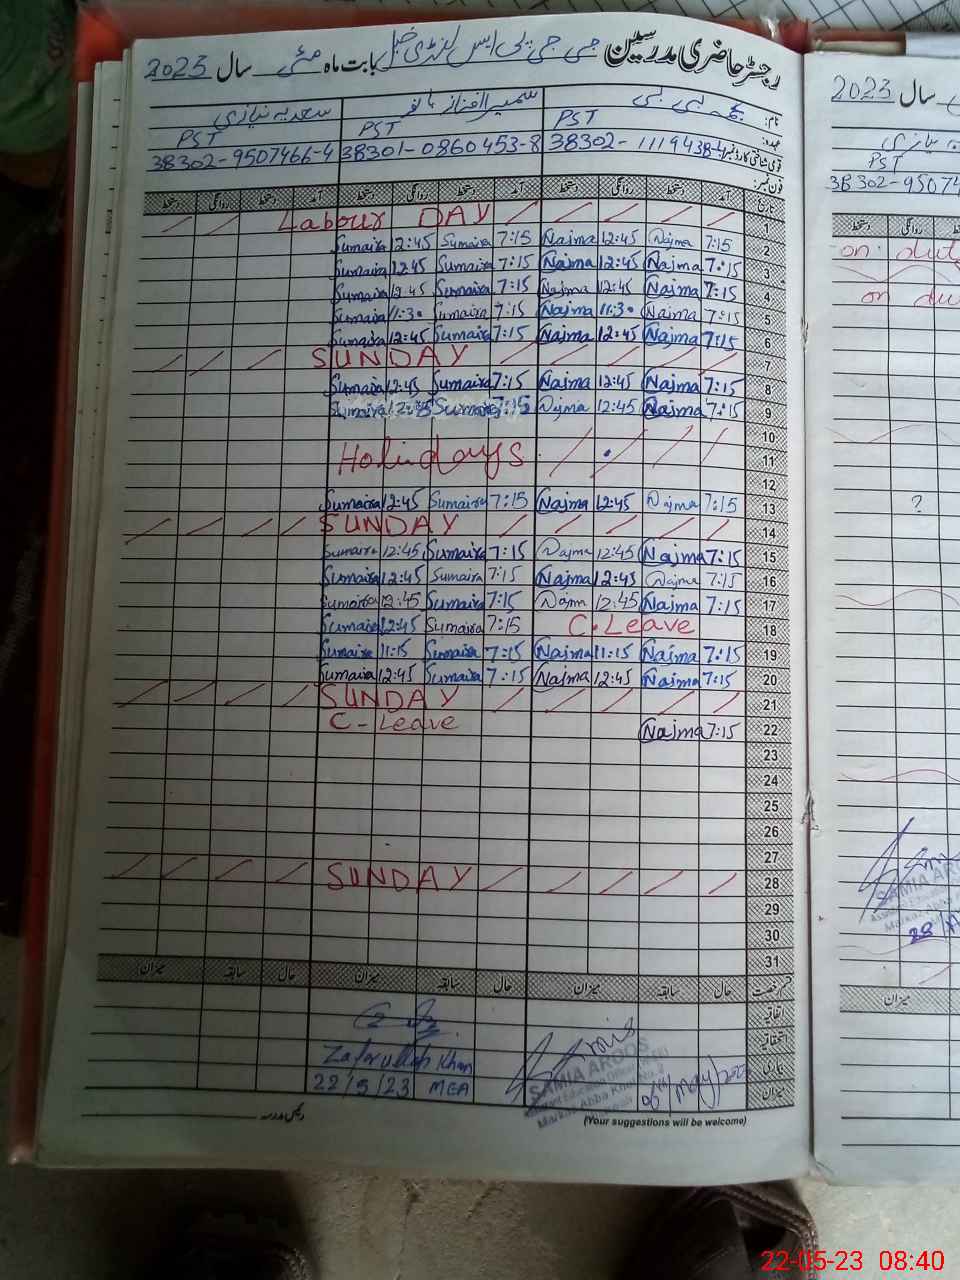 رجسٹر حاضری مدرسین جی جی پی ایس لنڈی خیل بابت ماہ مئی سال 2023
نام: نجمہ بی بی سمیرا افتاز بانو سعدیہ نیازی
عہدہ: PST PST PST
قومی شناختی کارڈ نمبر 38302-1119438-4 38301-0860453-8 38302-9507466-4
فون نمبر:
تاریخ آمد دستخط روانگی دستخط آمد دستخط روانگی دستخط آمد دستخط روانگی دستخط
1 Labour DAY
2 7:15 Najma 12:45 Najma 7:15 Sumaira 12:45 Sumaira
3 7:15 Najma 12:45 Najma 7:15 Sumaira 12:45 Sumaira
4 7:15 Najma 12:45 Najma 7:15 Sumaira 12:45 Sumaira
5 7:15 Najma 11:30 Najma 7:15 Sumaira 11:30 Sumaira
6 7:15 Najma 12:45 Najma 7:15 Sumaira 12:45 Sumaira
7 SUNDAY
8 7:15 Najma 12:45 Najma 7:15 Sumaira 12:45 Sumaira
9 7:15 Najma 12:45 Najma 7:15 Sumaira 12:45 Sumaira
10
11 Holidays
12
13 7:15 Najma 12:45 Najma 7:15 Sumaira 12:45 Sumaira
14 SUNDAY
15 7:15 Najma 12:45 Najma 7:15 Sumaira 12:45 Sumaira
16 7:15 Najma 12:45 Najma 7:15 Sumaira 12:45 Sumaira
17 7:15 Najma 12:45 Najma 7:15 Sumaira 12:45 Sumaira
18 C.Leave 7:15 Sumaira 12:45 Sumaira
19 7:15 Najma 11:15 Najma 7:15 Sumaira 11:15 Sumaira
20 7:15 Najma 12:45 Najma 7:15 Sumaira 12:45 Sumaira
21 SUNDAY
22 7:15 Najma C-Leave
23
24
25
26
27
28 SUNDAY
29
30
31
قسم رخصت حال سابقہ میزان حال سابقہ میزان حال سابقہ میزان
اتفاقیہ
استحقاقیہ
بیماری
میزان
Zafarullah Khan
22/5/23 MEA
SAMIA AROOS
Markaz Abba Khel No. 2
رئیس مدرسہ
(Your suggestions will be welcome)
سال 2023
PST
38302-9507
روانگی دستخط
on duty
on du
?
SAMIA AROO
28
میزان
22-05-23 08:40